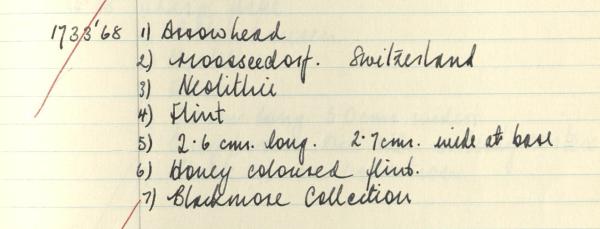 1733'68 1) Arrowhead
2) Moosseedorf. Switzerland
3) Neolithic
4) Flint
5) 2·6 cms. long. 2·7cms. wide at base
6) Honey coloured flint.
7) Blackmore Collection